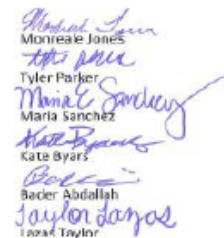 Monreale Jones
Tyler Parker
Maria E Sanchez
Maria Sanchez
Kate Byars
Kate Byars
Bader Abdallah
Taylor Lazos
Lazas Taylor